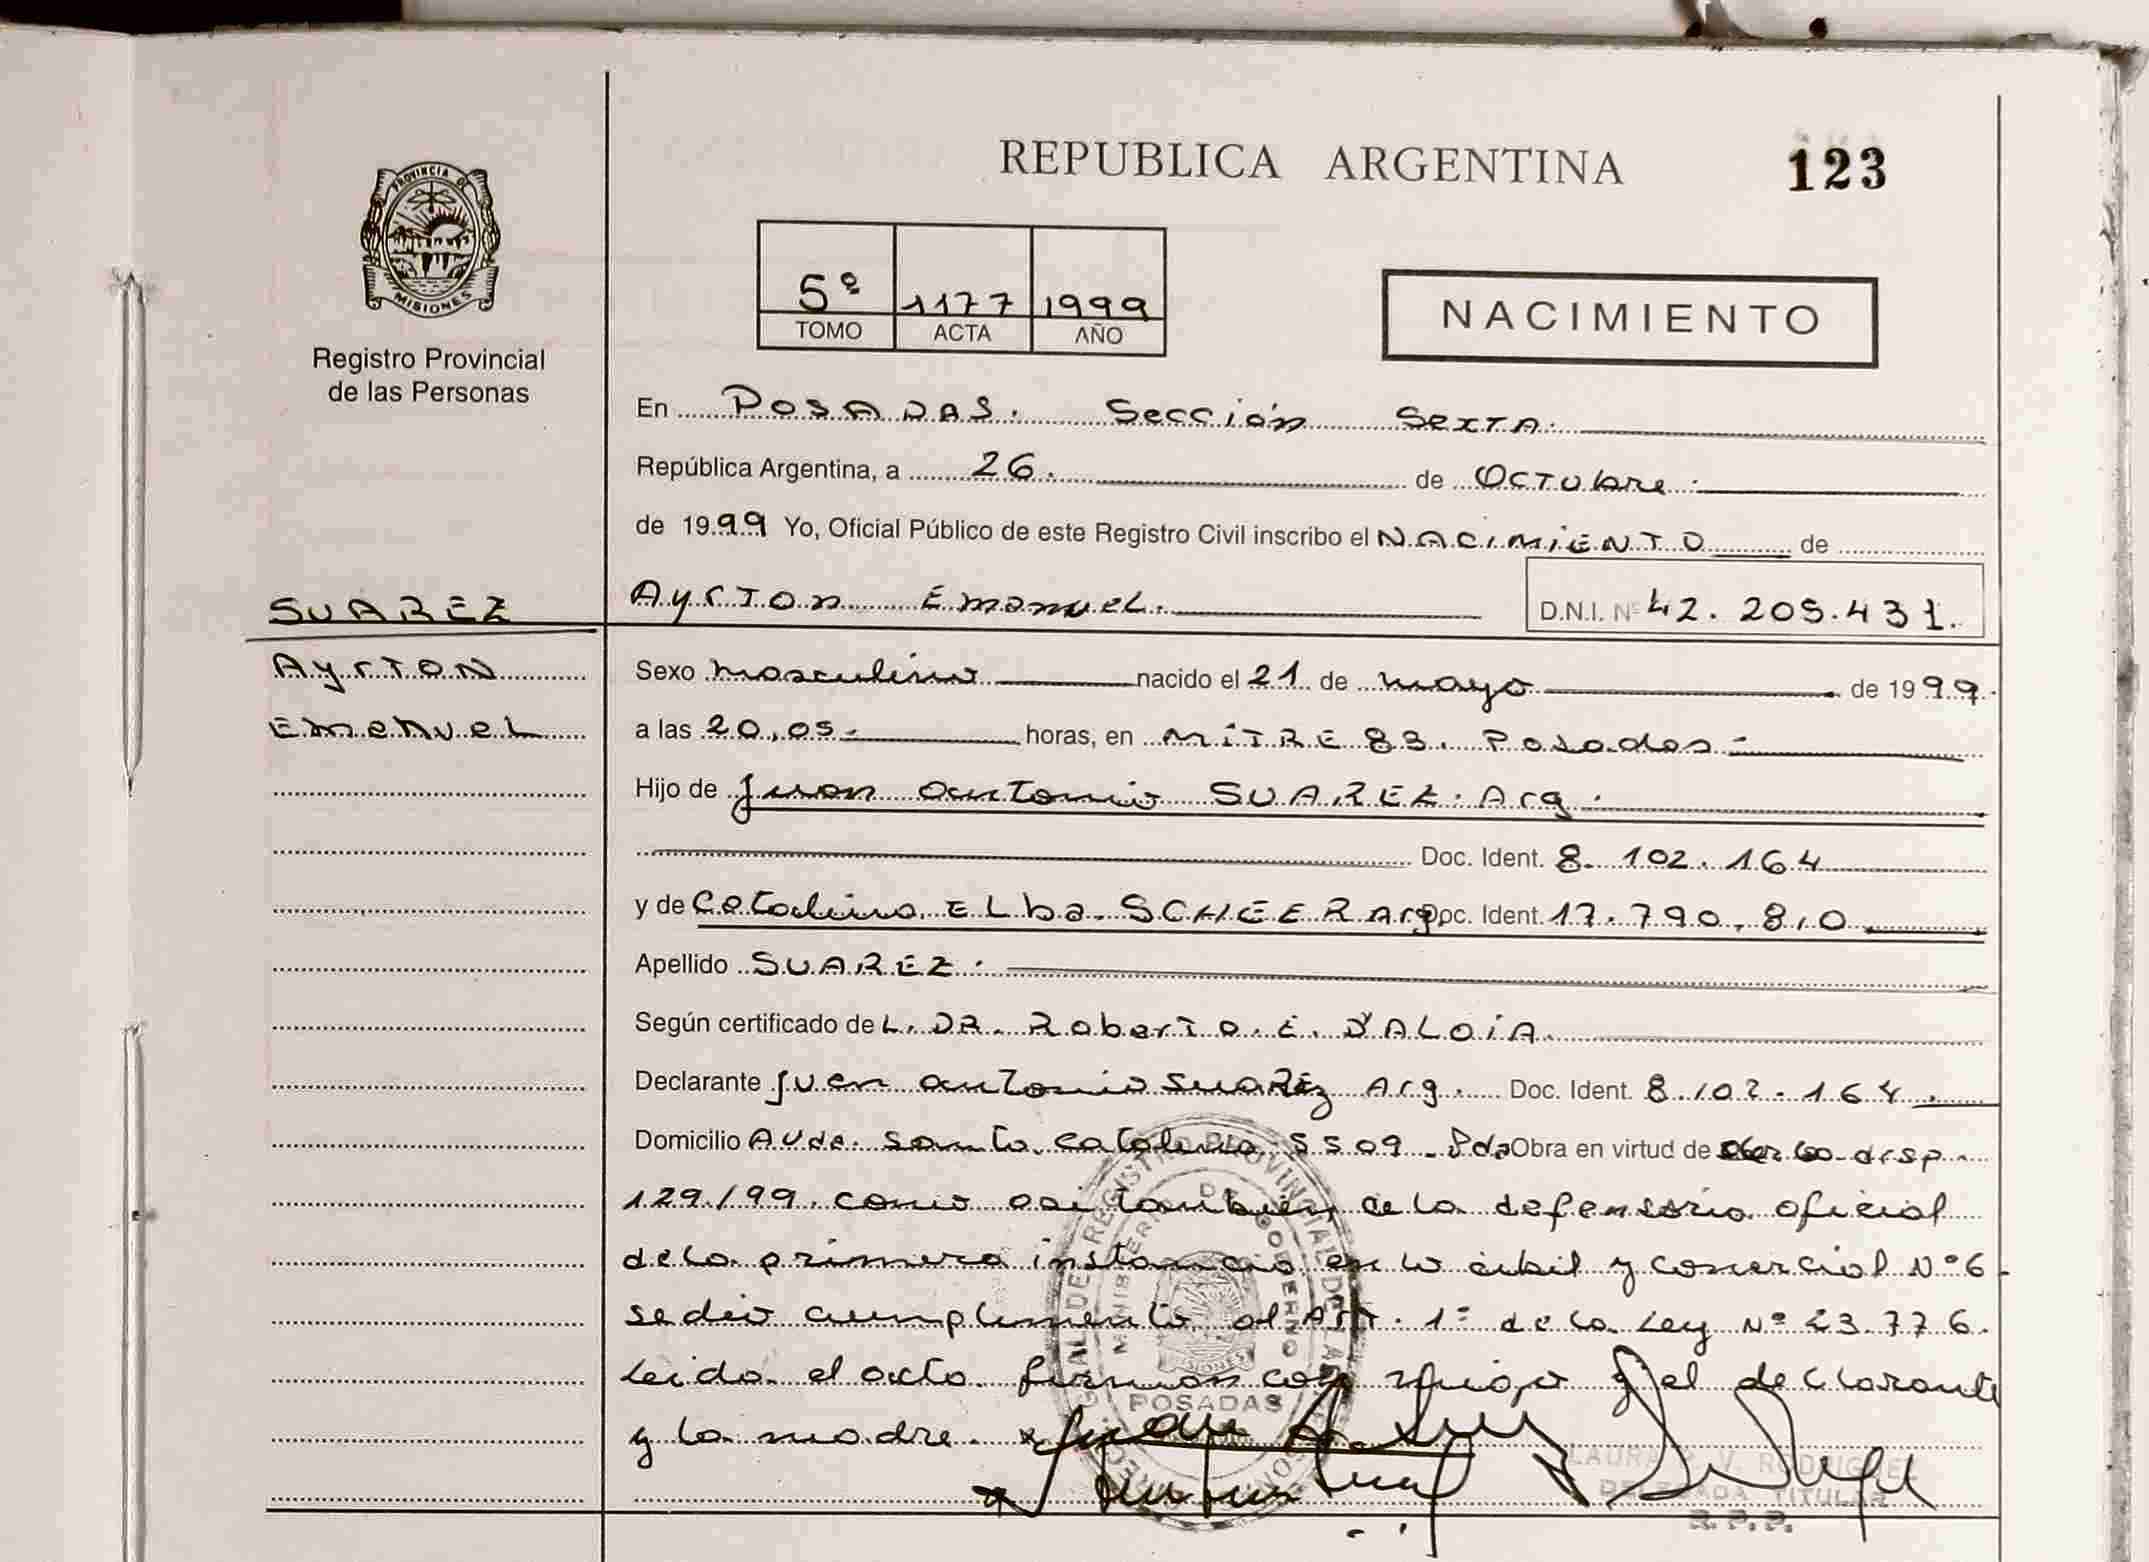 REPUBLICA ARGENTINA
123
PROVINCIA DE
MISIONES
Registro Provincial
de las Personas
5º 1177 1999
TOMO ACTA AÑO
NACIMIENTO
En POSADAS. Sección Sexta.
República Argentina, a 26. de Octubre.
de 1999 Yo, Oficial Público de este Registro Civil inscribo el NACIMIENTO de
SUAREZ
Ayrton Emanuel. D.N.I. Nº 42.205.431.
Ayrton
Emanuel
Sexo masculino nacido el 21 de mayo de 1999.
a las 20,05.- horas, en MITRE 83. Posadas.-
Hijo de Juan Antonio SUAREZ. Arg.
Doc. Ident. 8.102.164
y de Catalina Elba. SCHEER Arg. Doc. Ident. 17.790.810
Apellido SUAREZ.
Según certificado de L. DR. Roberto. E. D'ALOIA.
Declarante Juan Antonio Suarez Arg. Doc. Ident. 8.102.164.
Domicilio Avda. Santa Catalina 5509 - Pdas Obra en virtud de disp.
129/99. como asi tambien de la defensoria oficial
de la primera instancia en lo cibil y comercial Nº 6.
se dio cumplimento al Art. 1º de la Ley Nº 23.776.
Leida el acta firman conmigo y el declarante
y la madre.
REGISTRO PROVINCIAL DE LAS PERSONAS
MINISTERIO DE GOBIERNO
MISIONES
POSADAS
LAURA V. RODRIGUEZ
DELEGADA TITULAR
R.P.P.